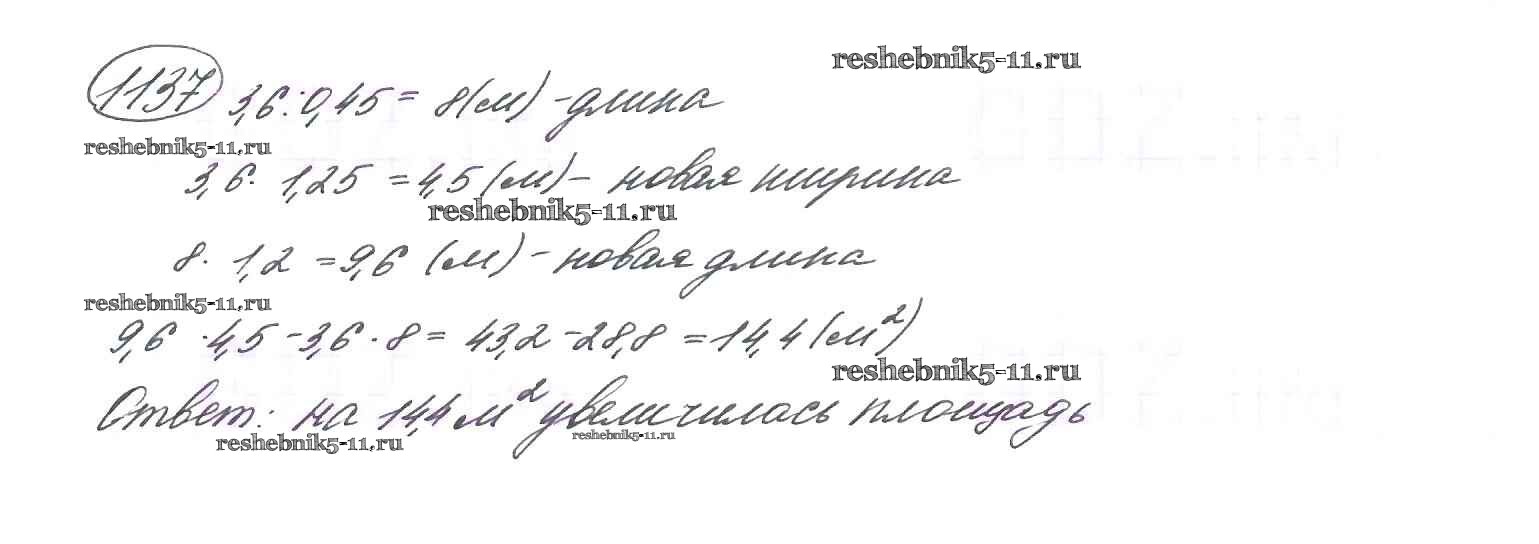 reshebnik5-11.ru
1137 3,6 : 0,45 = 8(м) - длина
reshebnik5-11.ru
3,6 · 1,25 = 4,5 (м) - новая ширина
reshebnik5-11.ru
8 · 1,2 = 9,6 (м) - новая длина
reshebnik5-11.ru
9,6 · 4,5 - 3,6 · 8 = 43,2 - 28,8 = 14,4 (м²)
reshebnik5-11.ru
Ответ: на 14,4 м² увеличилась площадь
reshebnik5-11.ru
reshebnik5-11.ru